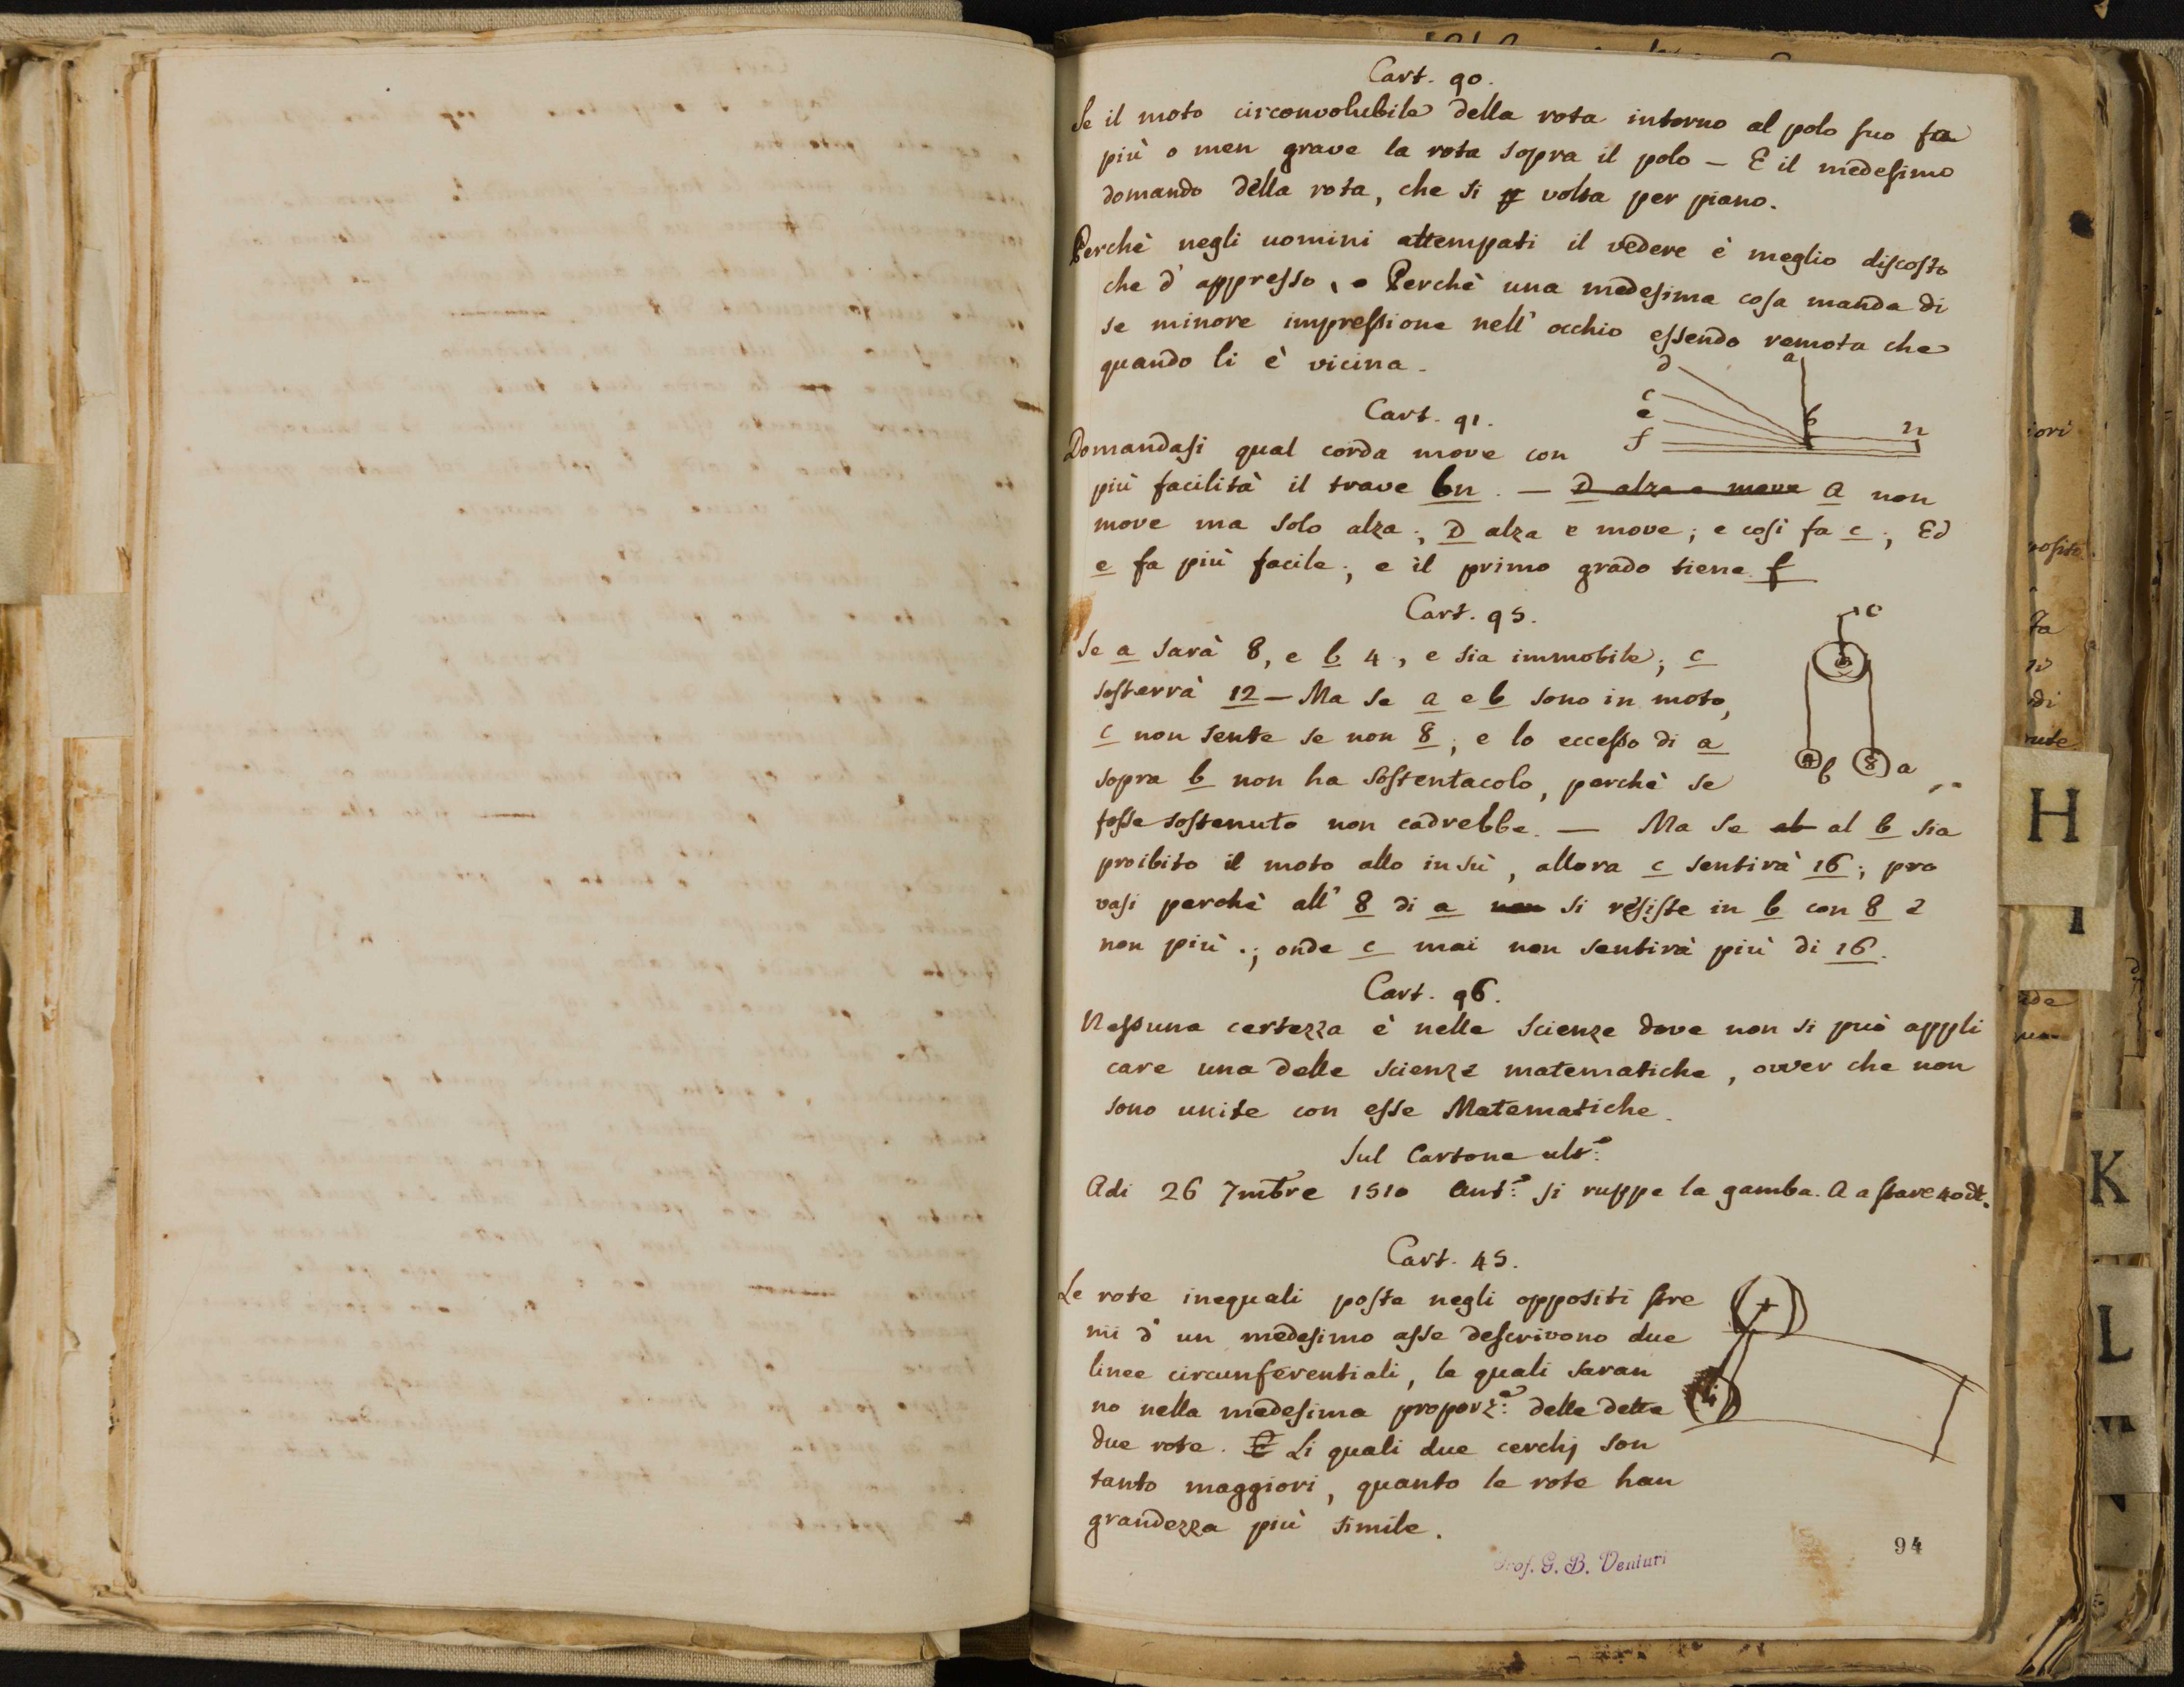 Cart. 90.
Se il moto circonvolubile della rota intorno al polo suo fa
più o men grave la rota sopra il polo — E il medesimo
domando della rota, che si volta per piano.
Perchè negli uomini attempati il vedere è meglio discosto
che d'appresso. Perchè una medesima cosa manda di
se minore impressione nell'occhio essendo remota che
quando li è vicina.
d a
c
e b n
f
Cart. 91.
Domandasi qual corda move con
più facilità il trave bn. — D alza e move a non
move ma solo alza; D alza e move; e così fa c; Ed
e fa più facile; e il primo grado tiene f
Cart. 95.
c
Se a sarà 8, e b 4, e sia immobile; c
sosterrà 12 — Ma se a e b sono in moto,
c non sente se non 8; e lo eccesso di a
4 b 8 a
sopra b non ha sostentacolo, perchè se
fosse sostenuto non cadrebbe. — Ma se al b sia
proibito il moto allo insù, allora c sentirà 16; pro
vasi perchè all' 8 di a non si resiste in b con 8 e
non più.; onde c mai non sentirà più di 16.
Cart. 96.
Nessuna certezza è nelle scienze dove non si può appli
care una delle scienze matematiche, over che non
sono unite con esse Matematiche.
Sul Cartone ult.º
Adi 26 7mbre 1510 Ant.º si ruppe la gamba. A a stare 40 dì.
Cart. 45.
Le rote inequali poste negli oppositi stre
mi d'un medesimo asse descrivono due
linee circunferentiali, le quali saran
no nella medesima proporz.e delle dette
due rote. E Li quali due cerchj son
tanto maggiori, quanto le rote han
grandezza più simile.
Prof. G. B. Venturi
94
H
I
K
L
M
N